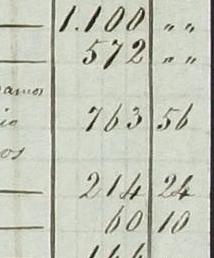 1.100 " "
572 " "
amos
io 763 56
os
214 24
60 10